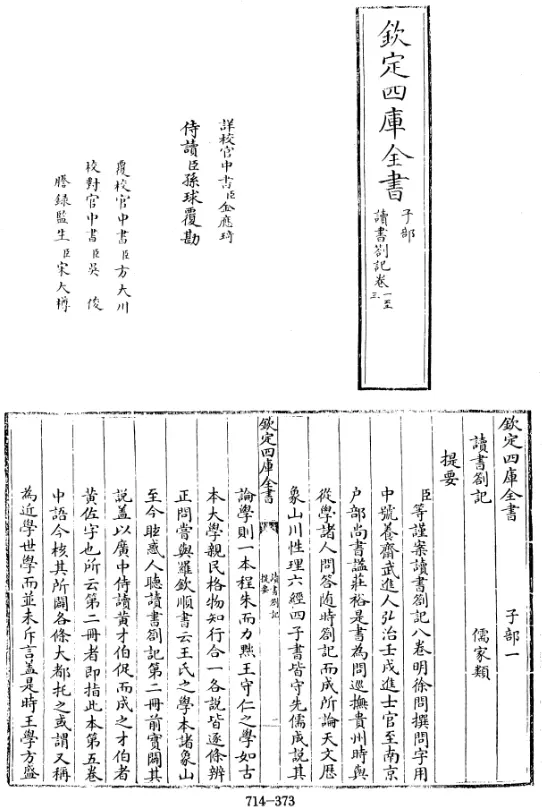 欽定四庫全書
子部
讀書劄記卷一至三
詳校官中書臣金應琦
侍讀臣孫球覆勘
覆校官中書臣方大川
校對官中書臣吳俊
謄錄監生臣宋大樽
欽定四庫全書 子部一
讀書劄記 儒家類
提要
臣等謹案讀書劄記八卷明徐問撰問字用
中號養齋武進人弘治壬戌進士官至南京
户部尚書諡莊裕是書為問巡撫貴州時與
從學諸人問答隨時劄記而成所論天文歷
象山川性理六經四子書皆守先儒成說其
欽定四庫全書 讀書劄記 提要
論學則一本程朱而力黜王守仁之學如古
本大學親民格物知行合一各說皆逐條辨
正問嘗與羅欽順書云王氏之學本諸象山
至今眩惑人聽讀書劄記第二冊前實闢其
說蓋以廣中侍讀黄才伯促而成之才伯者
黄佐字也所云第二冊者即指此本第五卷
中語今核其所闢各條大都托之或謂又稱
為近學世學而並未斥言蓋是時王學方盛
714-373